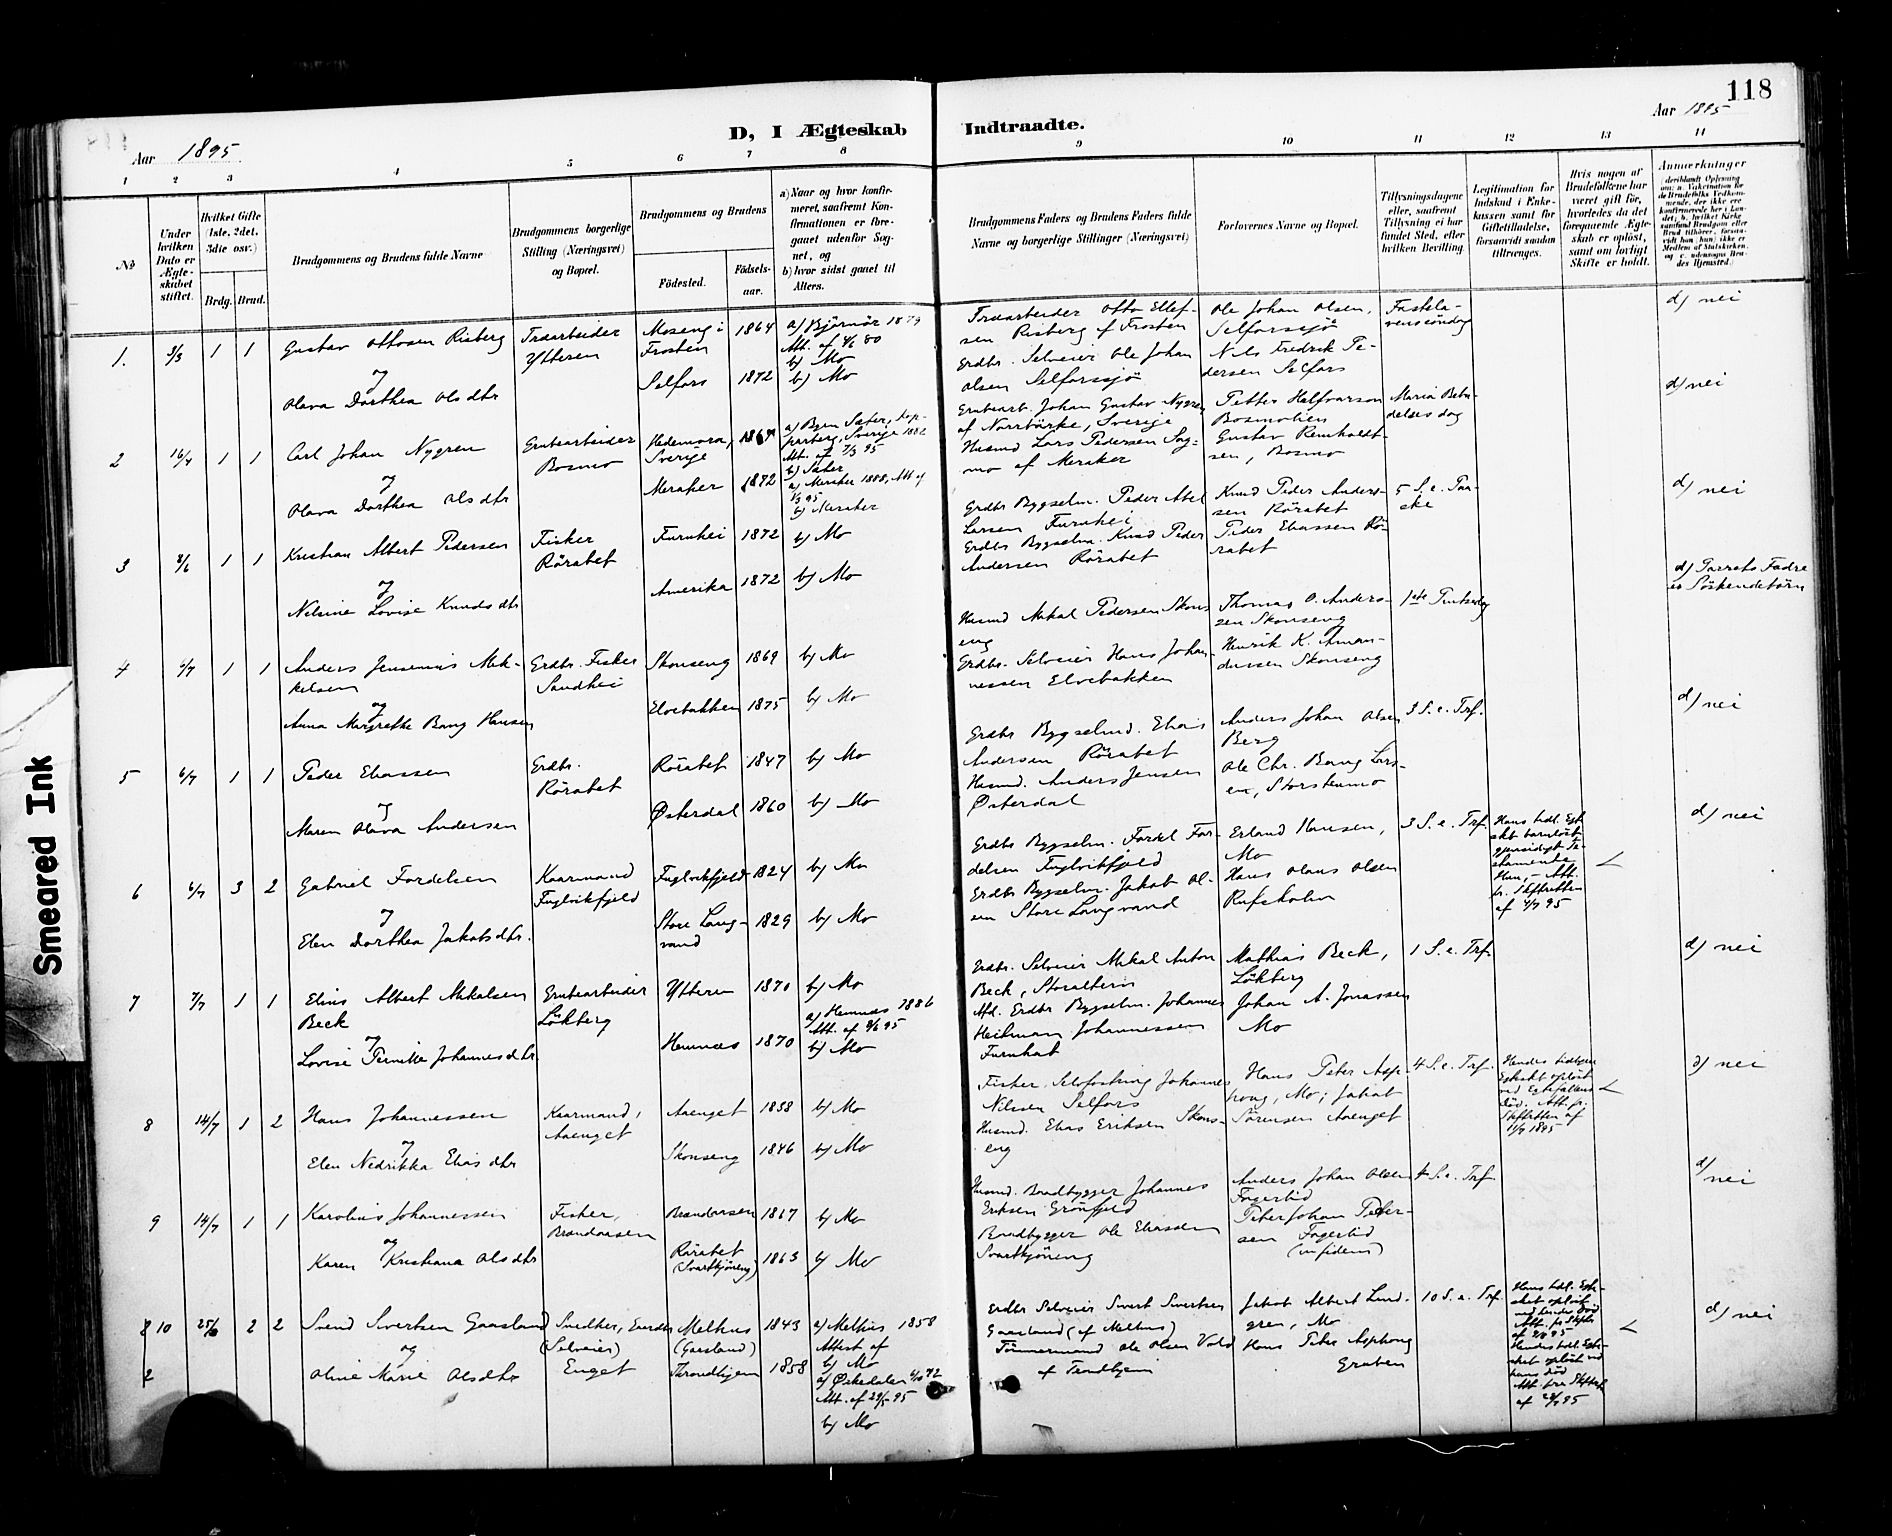 118
D, I Ægteskab Indtraadte.
Aar 1895.
Aar 1895
1 2 3 4 5 6 7 8 9 10 11 12 13 14
№
Under hvilken Dato er Ægteskabet stiftet.
Hvilket Gifte (1ste, 2det, 3die osv.)
Brdg. Brud.
Brudgommens og Brudens fulde Navne
Brudgommens borgerlige Stilling (Næringsvei) og Bopæl.
Brudgommens og Brudens
Fødested.
Fødselsaar.
a) Naar og hvor konfirmeret, saafremt Konfirmationen er foregaaet udenfor Sognet, og
b) hvor sidst gaaet til Alters.
Brudgommens Faders og Brudens Faders fulde Navne og borgerlige Stillinger (Næringsvei)
Forlovernes Navne og Bopæl.
Tillysningsdagene eller, saafremt Tillysning ei har fundet Sted, efter hvilken Bevilling
Legitimation for Indskud i Enkekassen samt for Giftetilladelse, forsaavidt saadan tiltrænges.
Hvis nogen af Brudefolkene har været gift før, hvorledes da det foregaaende Ægteskab er opløst, samt om lovligt Skifte er holdt.
Anmærkninger
1. 3/3 1 1 Gustav Ottosen Risberg
og
Olava Dorthea Olsdtr
Træarbeider
Ytteren
Moseng i Frosten 1864
Selfors 1872
a) Bjørnør 1879
Att. af 4/6 80
b) Mo
b) Mo
Træarbeider Otto Ellefsen Risberg af Frosten
Erdbr. Selveier Ole Johan Olsen Selforssjø
Ole Johan Olsen, Selforssjø
Nils Fredrik Pedersen Selfors
Fastelavenssøndag
d) nei
2 16/4 1 1 Carl Johan Nygren
og
Olava Dorthea Olsdtr
Grubearbeider
Bosmo
Hedemora, Sverige
Meraker 1872
Att. af 7/3 95
b) Sater
a) Meraker 1888, Att af 1/3 95
b) Meraker
Grubearb. Johan Gustav Nygren af Norrbärke, Sverige
Husmd Lars Pedersen Sagmo af Meraker
Petter Halfvarson Bosmolien
Gustav Reinholdtsen, Bosmo
Maria Bebudelses dag
d) nei
3 2/6 1 1 Kristian Albert Pedersen
og
Nelsine Lovise Knudsdtr
Fisker
Rørabet
Furuhei 1872
Amerika 1872
b) Mo
b) Mo
Erdbr Bygselm. Peder Abel Larsen Furuhei
Erdbr Bygselm. Knud Peder Andersen Rørabet
Knud Peder Andersen Rørabet
Peder Eliassen Rørabet
5 S. e. Paaske
d) nei
4 6/7 1 1 Anders Jensenius Mikkelsen
og
Anna Margrethe Bang Hansen
Erdbr. Fisker
Sandhei
Skonseng 1869
Elvebakken 1875
b) Mo
b) Mo
Husmd Mikal Pedersen Skonseng
Erdbr. Selveier Hans Johannessen Elvebakken
Thomas O. Anderssen Skonseng
Henrik K. Amandussen Skonseng
1ste Pintsedag
d) Parrets Fædre er Söskendebörn
5 6/7 1 1 Peder Eliassen
og
Maren Olava Andersen
Erdbr.
Rørabet
Rørabet 1847
Østerdal 1860
b) Mo
b) Mo
Erdbr Bygselmd. Elias Andersen Rørabet
Husmd. Anders Jensen Østerdal
Anders Johan Olsen Berg
Ole Chr. Bang Larsen, Storstenmo
3 S. e. Trf.
d) nei
6 6/7 3 2 Gabriel Fordelsen
og
Elen Dorthea Jakobsdtr.
Kaarmand
Fuglvikfjeld
Fuglvikfjeld 1824
Store Langvand 1829
b) Mo
b) Mo
Erdbr Bygselm. Fordel Fordelsen Fuglvikfjeld
Erdbr Bygselm. Jakob Olsen Store Langvand
Erland Hansen, Mo
Hans Olaus Olsen Rufsholm
3 S. e. Trf.
Att. fr. Skifteretten af 4/7 95
d) nei
7 7/7 1 1 Elius Albert Mikalsen Beck
og
Lovise Pernille Johannesdtr
Grubearbeider
Løkberg
Ytteren 1870
Hemnæs 1870
b) Mo
a) Hemnæs 1886
Att. af 8/6 95
b) Mo
Erdbr. Selveier Mikal Anton Beck, Storalteren
Afd. Erdbr Bygselm. Johannes Heitman Johannessen Furuhat
Mathias Beck, Løkberg
Johan A. Jonassen Mo
1 S. e. Trf.
d) nei
8 14/7 1 2 Hans Johannessen
og
Elen Nedrikka Eliasdtr
Kaarmand,
Aaenget
Aaenget 1858
Skonseng 1846
b) Mo
b) Mo
Fisker, Selvfostring Johannes Nilsen Selfors
Husmd. Elias Eriksen Skonseng
Hans Peter Asphoug, Mo; Jakob Sørensen Aaenget
4 S. e. Trf.
Att. fr. Skifteretten af 11/7 1895
d) nei
9 14/7 1 1 Karolius Johannessen
og
Karen Kristiana Olsdtr
Fisker,
Brændaasen
Brændaasen 1867
Rørabet (Svarttjøneng) 1863
b) Mo
b) Mo
Husmd. Baadbygger Johannes Eriksen Grønfjeld
Baadbygger Ole Eliassen Svarttjøneng
Anders Johan Olsen Fagerlid
Peter Johan Petersen Fagerlid
(in fidem)
4 S. e. Trf.
d) nei
10 25/8 2 2 Svend Sivertsen Gaasland
og
Oline Marie Olsdtr
Snedker,
(Selveier)
Enget
Melhus (Gaasland) 1843
Throndhjem 1858
a) Melhus 1858
Attest af
b) Mo
a) Ørkedalen 6/10 72
Att. af 29/5 95
b) Mo
Erdbr Selveier Sivert Sivertsen Gaasland (af Melhus)
Tømmermand Ole Olsen Vold af Trondhjem
Jakob Albert Lundgren, Mo
Hans Peter Asphoug Gruben
10 S. e. Trf.
d) nei
Smeared Ink